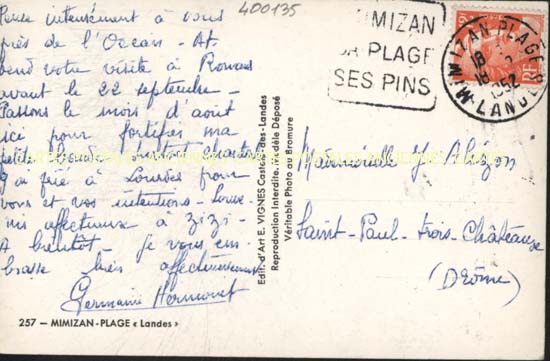 Pense intensément à vous
près de l'Océan - At-
tend votre visite à Romans
avant le 22 septembre -
Passons le mois d'août
ici pour fortifier ma
petite
prié à Lourdes pour
vous et vos intentions -
affectueux à zizi -
A bientôt - je vous em-
brasse très affectueusement
Germaine
257 - MIMIZAN-PLAGE « Landes »
Edit. d'Art E. VIGNES Castets-des-Landes
Reproduction Interdite. Modèle Déposé
Véritable Photo au Bromure
400135
MIMIZAN
SA PLAGE
SES PINS
MIMIZAN PLAGE
18
1952
LANDES
RF
Mademoiselle
Saint-Paul-trois-Châteaux
(Drôme)